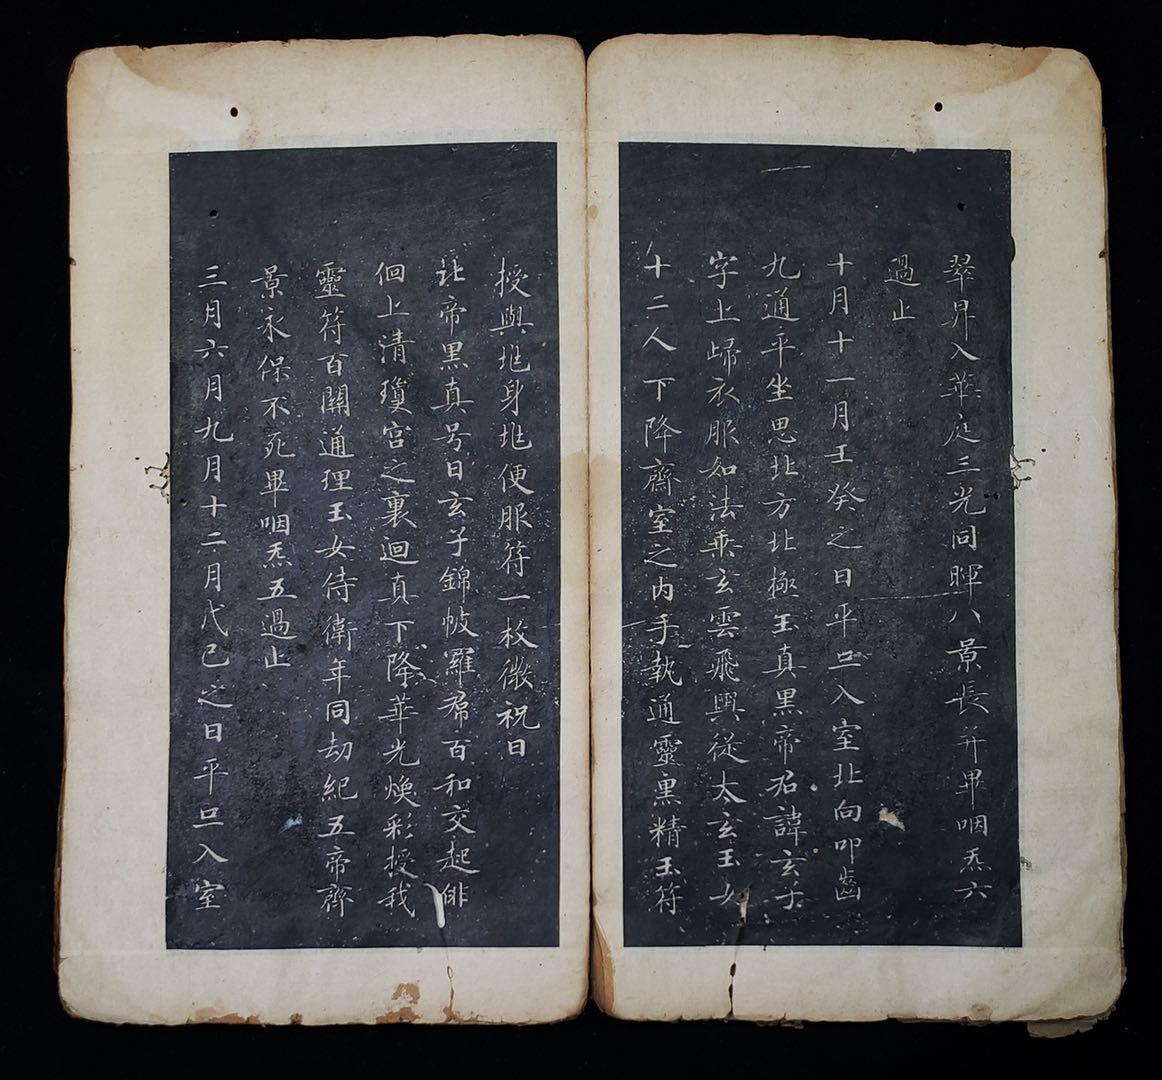 翠昇入華庭三光同暉八景長并畢咽炁六
過止
十月十一月壬癸之日平旦入室北向叩齒
九通平坐思北方北極玉真黑帝君諱玄子
字上歸衣服如法乗玄雲飛輿從太玄玉女
十二人下降齋室之内手執通靈黑精玉符
授與兆身兆便服符一枚微祝曰
北帝黑真号曰玄子錦帔羅帬百和交起俳
徊上清瓊宫之裏迴真下降華光煥彩授我
靈符百關通理玉女侍衛年同劫紀五帝齊
景永保不死畢咽炁五過止
三月六月九月十二月戊己之日平旦入室